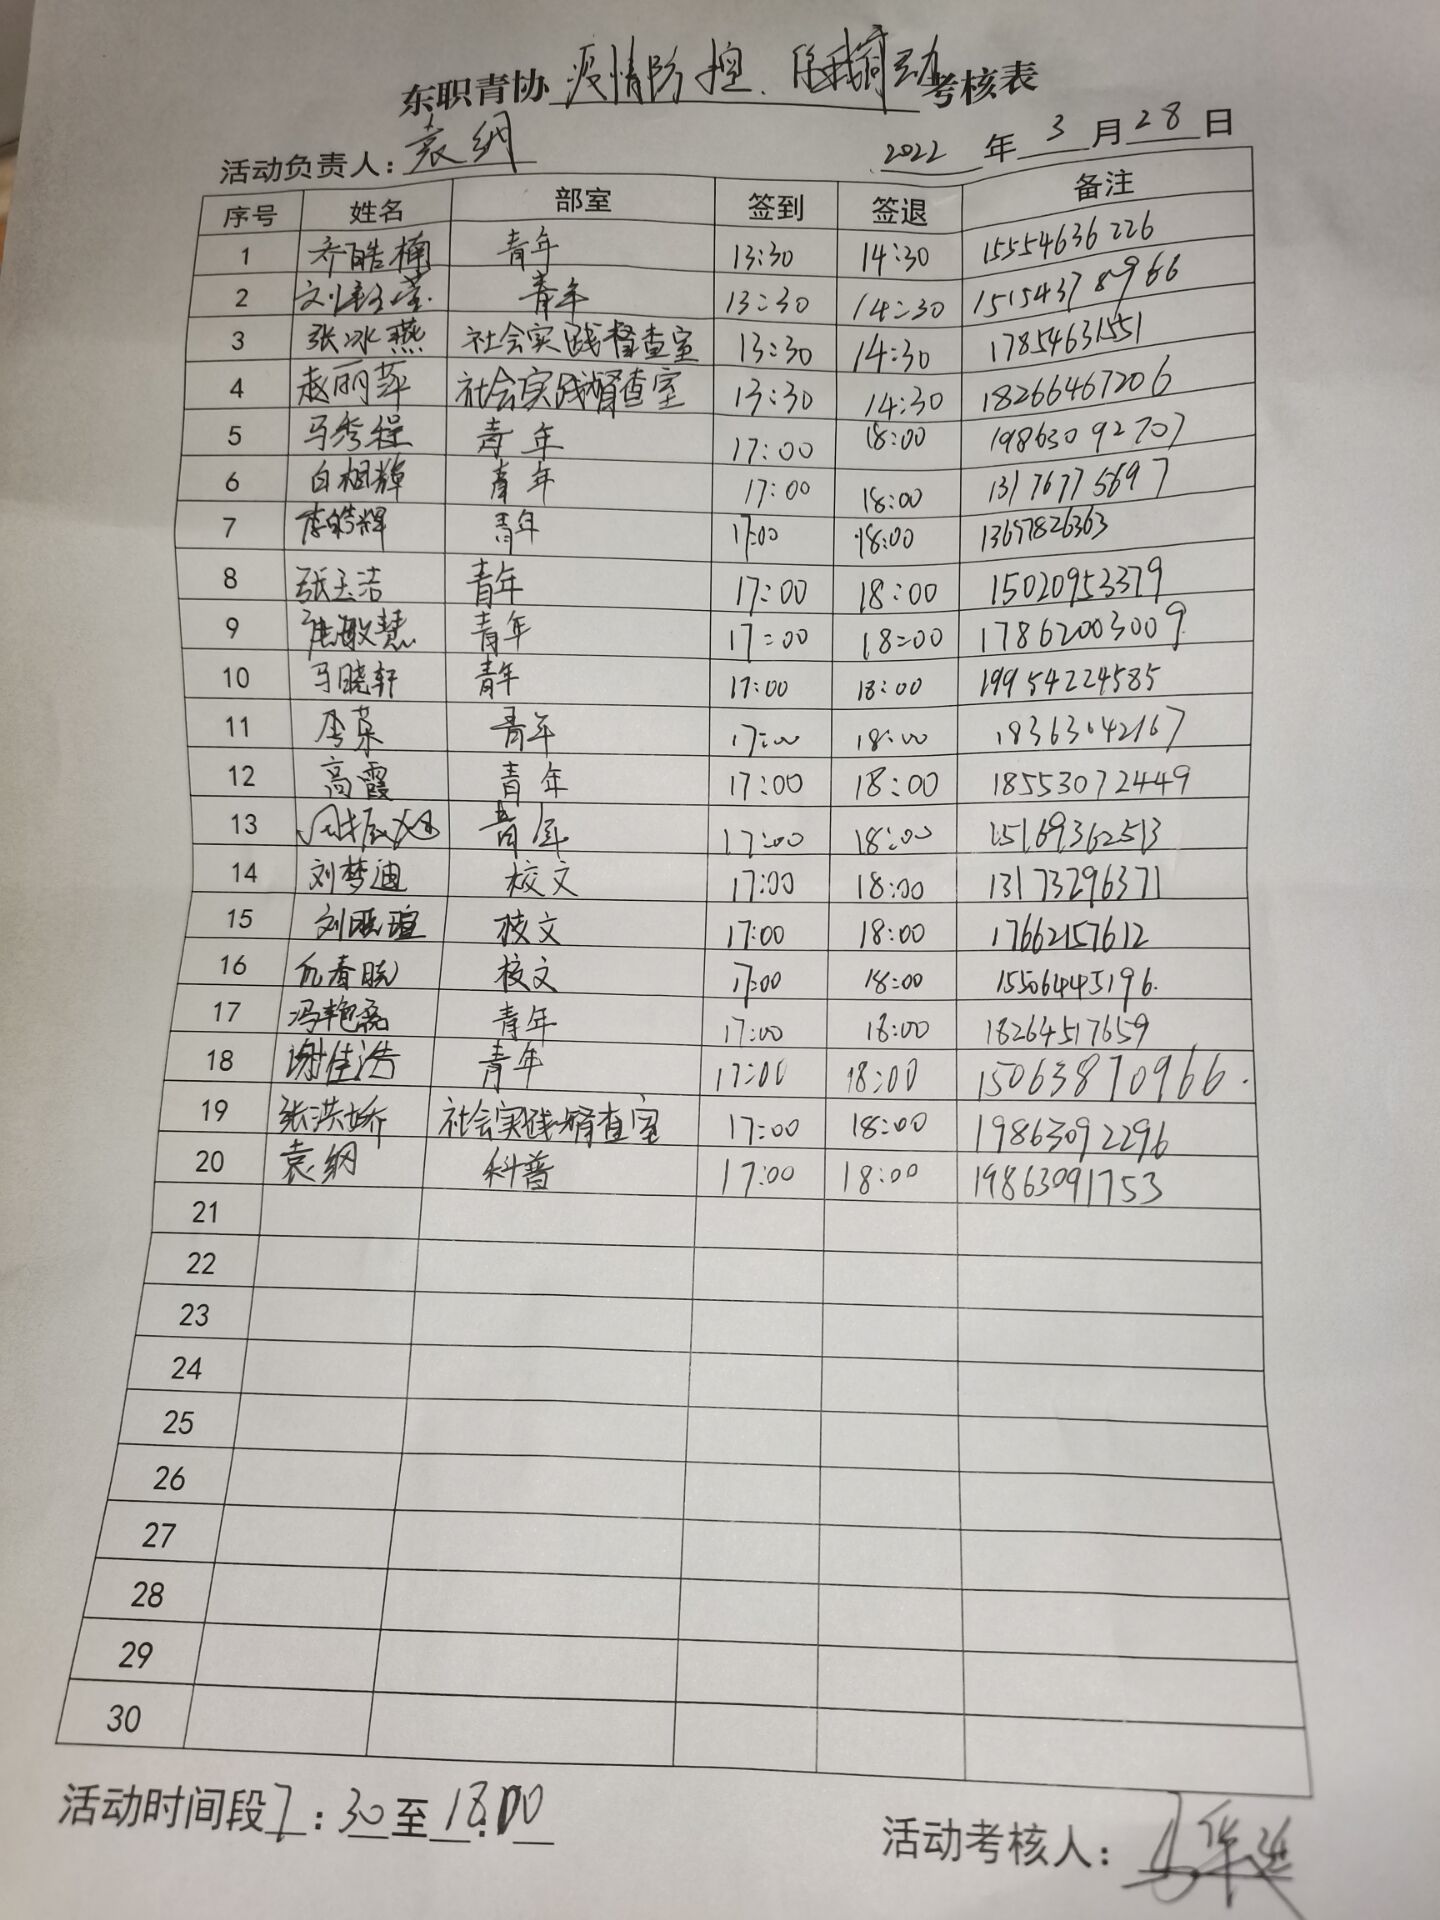 东职青协 疫情防控、你我同行动 考核表
活动负责人：袁纲 2022年3月28日
序号 姓名 部室 签到 签退 备注
1 齐皓楠 青年 13:30 14:30 15554636226
2 青年 13:30 14:30 15154378966
3 张冰燕 社会实践督查室 13:30 14:30 17854631551
4 赵丽萍 社会实践督查室 13:30 14:30 18266467206
5 马秀程 青年 17:00 18:00 19863092707
6 白相辉 青年 17:00 18:00 13176775697
7 李皓辉 青年 17:00 18:00 13697826363
8 张玉洁 青年 17:00 18:00 15020953379
9 青年 17:00 18:00 17862003009
10 马晓轩 青年 17:00 18:00 19954224585
11 青年 17:00 18:00 18363042167
12 高霞 青年 17:00 18:00 18553072449
13 青年 17:00 18:00 15169362513
14 刘梦迪 校文 17:00 18:00 13173296371
15 校文 17:00 18:00 17662157612
16 校文 17:00 18:00 15506445196
17 冯艳磊 青年 17:00 18:00 18264517659
18 谢佳浩 青年 17:00 18:00 15063870966
19 张洪娇 社会实践督查室 17:00 18:00 19863092296
20 袁纲 科普 17:00 18:00 19863091753
21
22
23
24
25
26
27
28
29
30
活动时间段7:30至18:00
活动考核人：马华廷